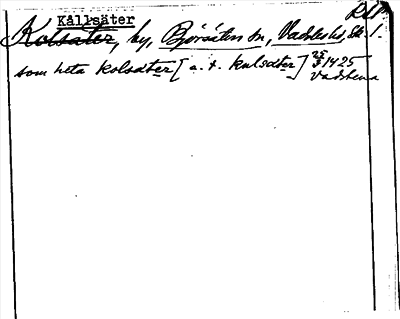 RUL
Källsäter
Kolsäter, by, Björsäters sn, Vadsbo hd, Sk. l.
som heta kolsäter [a. t. kulsäter] 25/3 1425
Vadstena